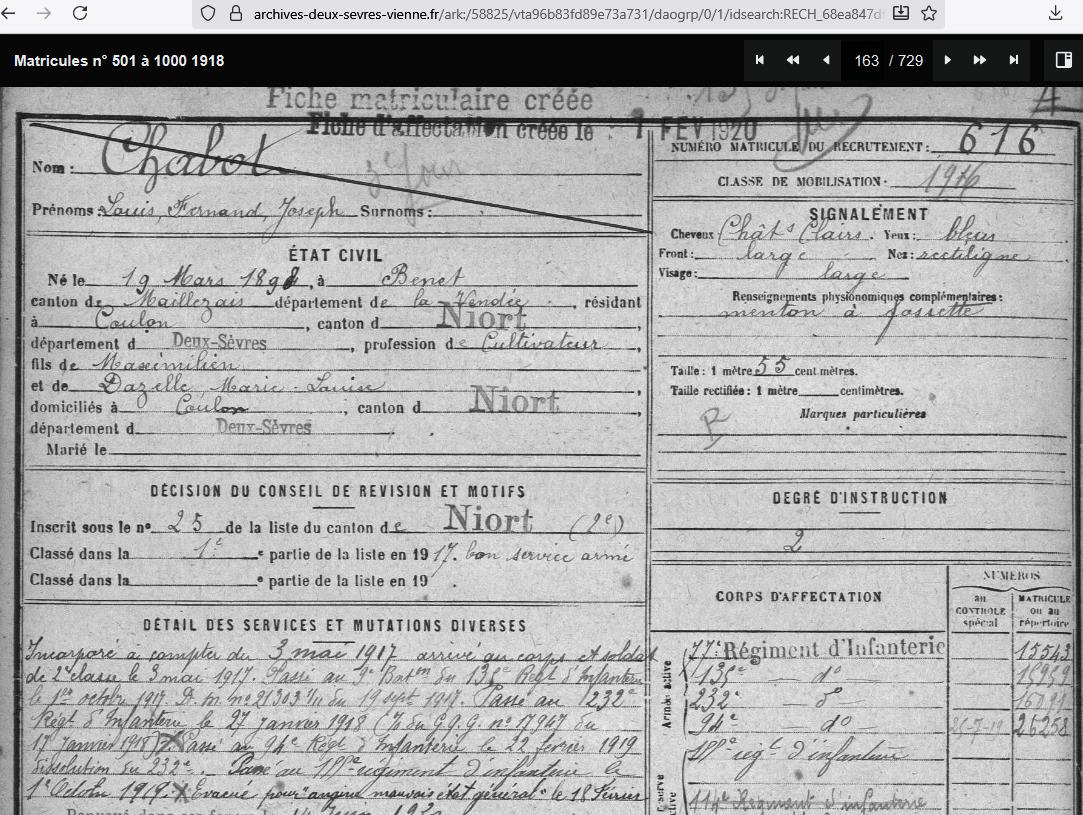 archives-deux-sevres-vienne.fr/ark:/58825/vta96b83fd89e73a731/daogrp/0/1/idsearch:RECH_68ea847d
Matricules n° 501 à 1000 1918
163 / 729
Fiche matriculaire créée
Fiche d'affectation créée le : FEV 1920
Nom : Chabot
Prénoms : Louis, Fernand, Joseph Surnoms :
NUMÉRO MATRICULE DU RECRUTEMENT : 616
CLASSE DE MOBILISATION 1916
ÉTAT CIVIL
Né le 19 Mars 1898, à Benet
canton de Maillezais département de la Vendée, résidant
à Coulon, canton d Niort,
département d Deux-Sèvres, profession de Cultivateur,
fils de Maximilien
et de Dazelle Marie-Louise
domiciliés à Coulon, canton d Niort,
département d Deux-Sèvres.
Marié le
SIGNALEMENT
Cheveux Châts Clairs. Yeux : bleus
Front : large Nez : rectiligne
Visage : large
Renseignements physionomiques complémentaires :
menton à fossette
Taille : 1 mètre 55 centimètres.
Taille rectifiée : 1 mètre centimètres.
Marques particulières
R
DÉCISION DU CONSEIL DE REVISION ET MOTIFS
Inscrit sous le n° 25 de la liste du canton de Niort (2e)
Classé dans la 1e e partie de la liste en 1917. bon service armé
Classé dans la e partie de la liste en 19 .
DEGRÉ D'INSTRUCTION
2
DÉTAIL DES SERVICES ET MUTATIONS DIVERSES
Incorporé à compter du 3 mai 1917 arrivé au corps et soldat
de 2e classe le 3 mai 1917. Passé au 9e Baton du 135e Régt d'Infanterie
le 1er octobre 1917. D. m. n° 21303 du 19 sept 1917. Passé au 232e
Régt d'Infanterie le 27 janvier 1918 (J du G.Q.G. n° 17947 du
17 janvier 1918). Passé au 94e Régt d'Infanterie le 22 février 1919
dissolution du 232e. Passé au régiment d'infanterie le
1er Octobre 1919. Evacué pour "angine mauvais état général" le 18 Février
CORPS D'AFFECTATION
NUMÉROS
au CONTROLE spécial
MATRICULE ou au répertoire
Armée active
77e Régiment d'Infanterie 15543
135e do 15959
232e do
94e do 26258
régt d'infanterie
114e Régiment d'infanterie